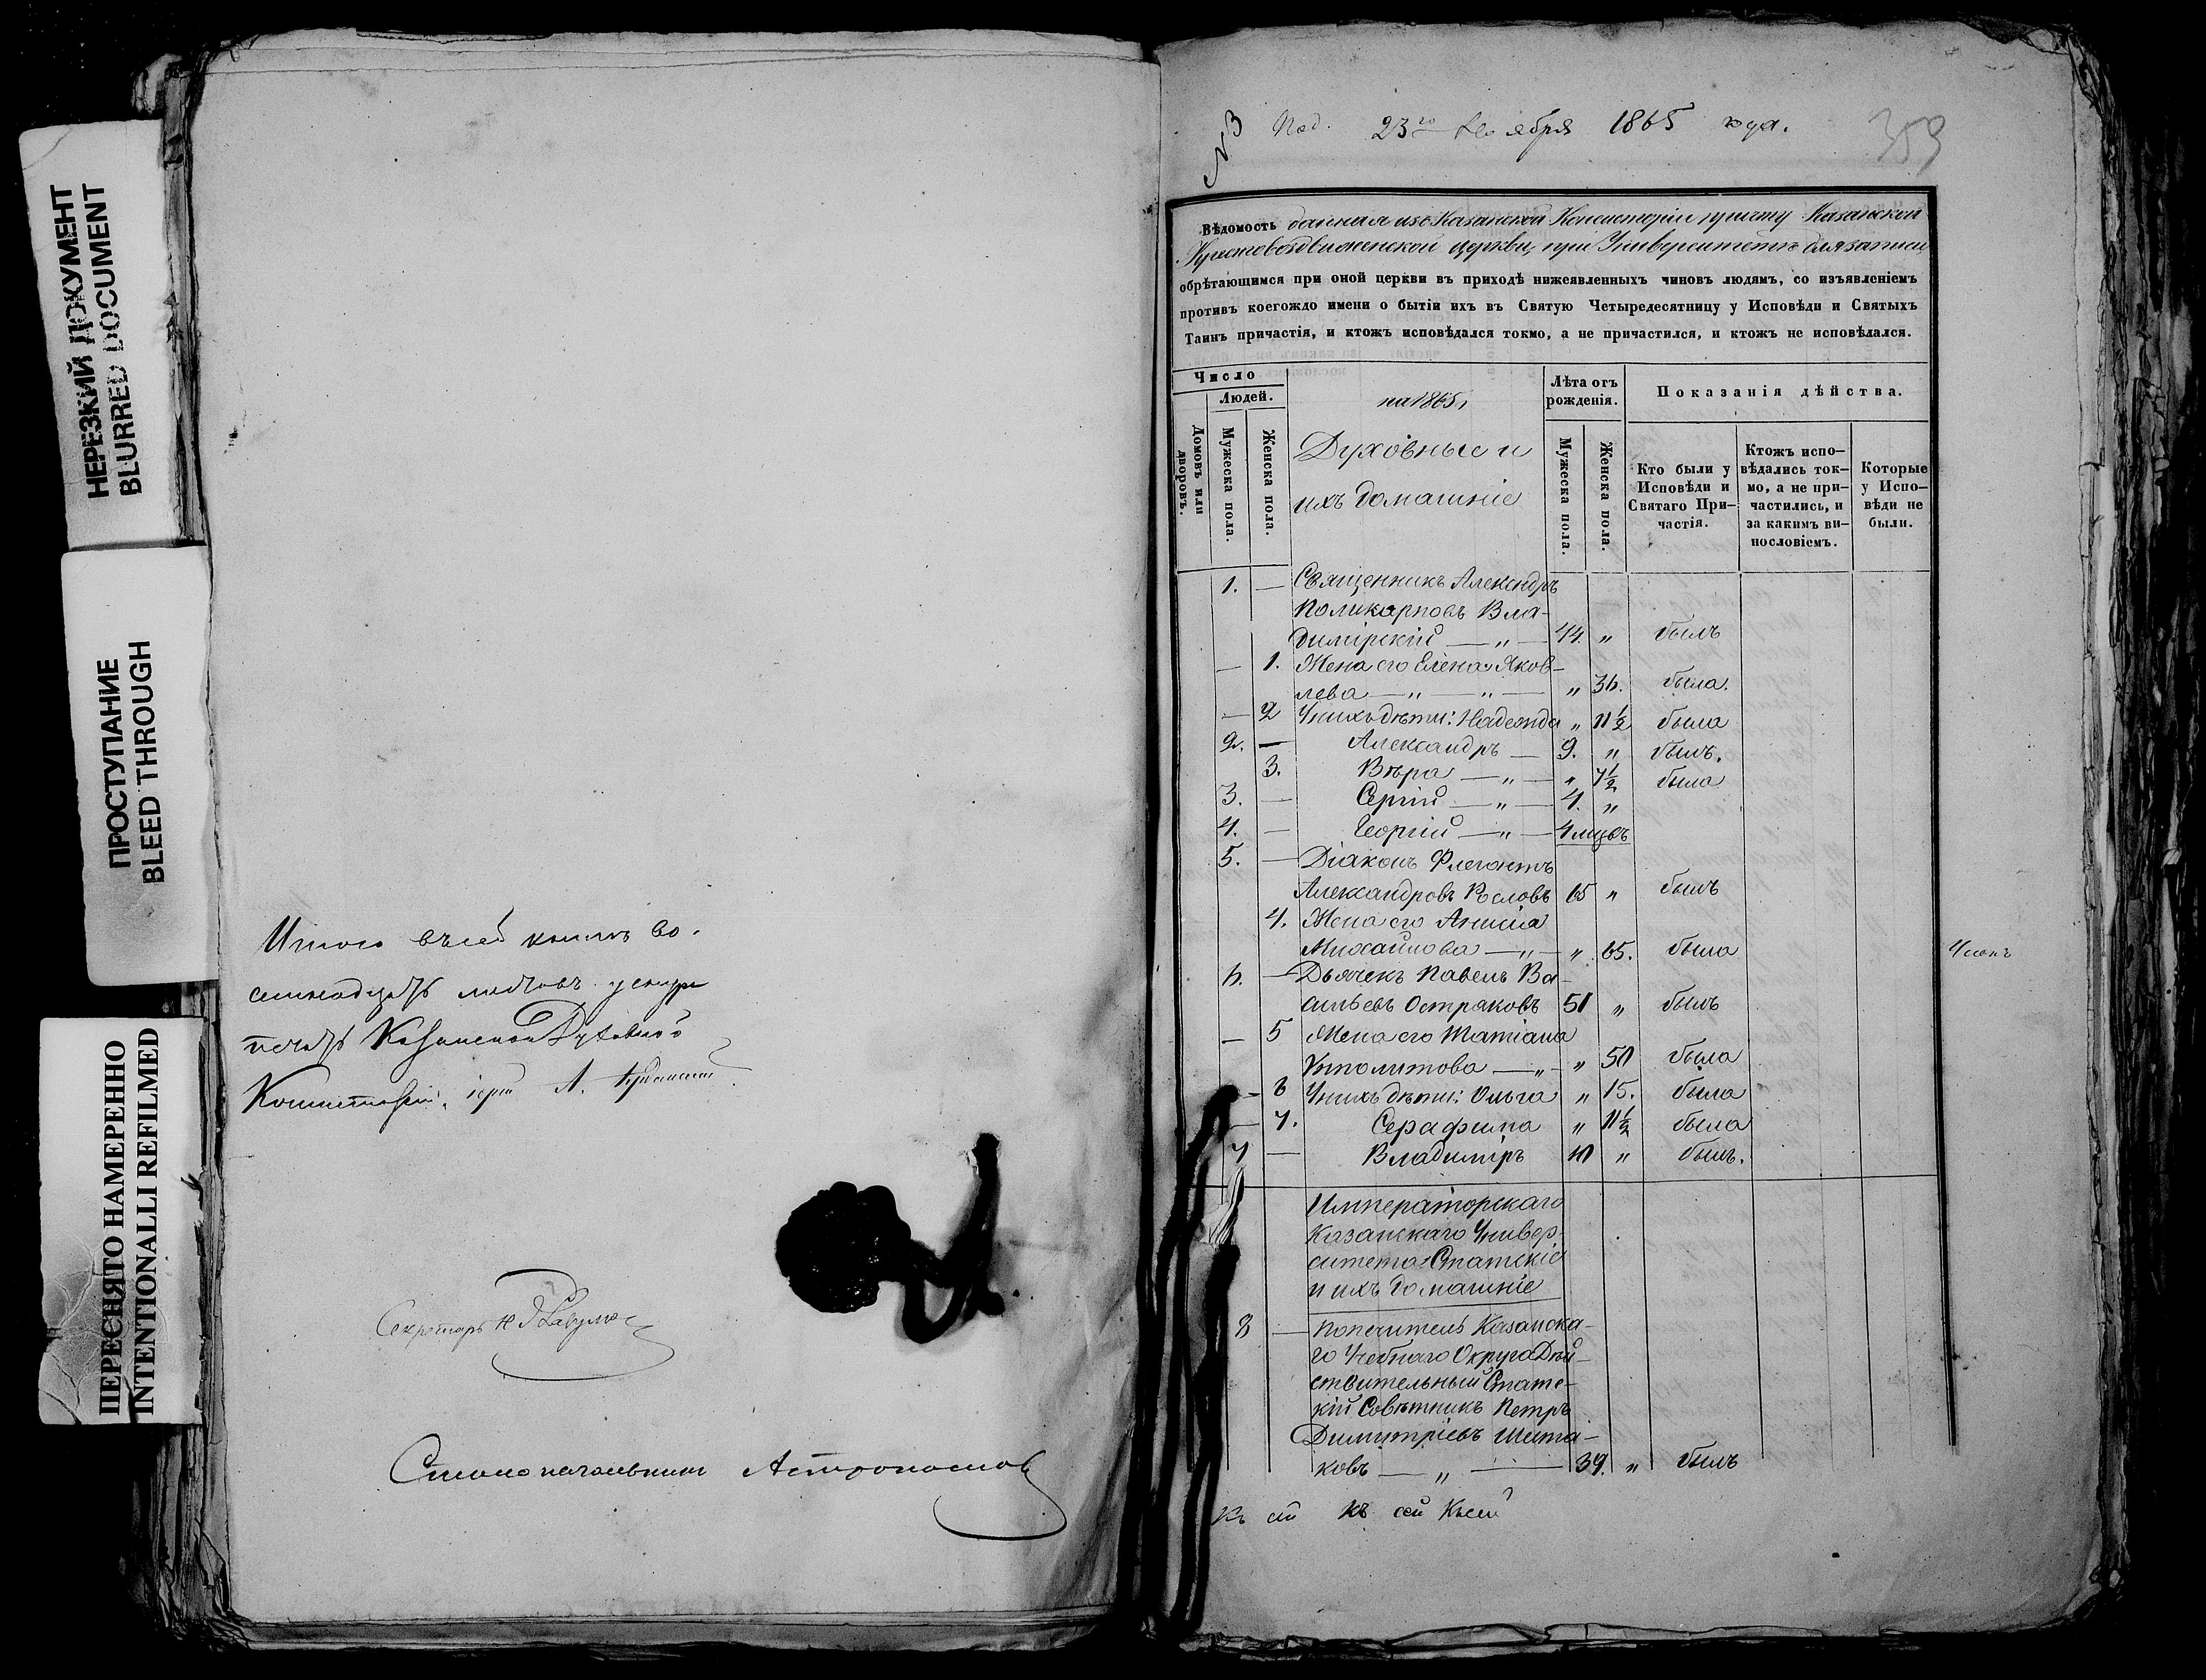 НЕРЕЗКИЙ ДОКУМЕНТ
BLURRED DOCUMENT
ПРОСТУПАНИЕ
BLEED THROUGH
ПЕРЕСНЯТО НАМЕРЕННО
INTENTIONALLI REFILMED
Итого въ сей книгѣ во-
семнадцать листовъ
печать Казанской Духовной
Консисторіи.
Секретарь
Столоначальникъ Астрономовъ
№3 Под. 23го ября 1865 года.
359
Вѣдомость данная изъ Казанской Консисторіи причту Казанской
Крестовоздвиженской церкви, при Университетѣ для записи
обрѣтающимся при оной церкви въ приходѣ нижеявленныхъ чиновъ людямъ, со изъявленіемъ
противъ коегождо имени о бытіи ихъ въ Святую Четыредесятницу у Исповѣди и Святыхъ
Таинъ причастія, и ктожъ исповѣдался токмо, а не причастился, и ктожъ не исповѣдался.
Число
Людей.
Домовъ или дворовъ.
Мужеска пола.
Женска пола.
на 1865,
Духовные и
ихъ домашніе
Лѣта отъ
рожденія.
Мужеска пола.
Женска пола.
Показанія дѣйства.
Кто были у
Исповѣди и
Святаго При-
частія.
Ктожъ испо-
вѣдались ток-
мо, а не при-
частились, и
за какимъ ви-
нословіемъ.
Которые
у Испо-
вѣди не
были.
1. — Священникъ Александръ
Поликарповъ Вла-
димірскій — „ — 44. „ былъ
— 1. Жена его Елена Яков-
лева — „ — „ — „ 36. была.
— 2 У нихъ дѣти: Надежда „ 11½ была
2. — Александръ — 9. „ былъ.
3. Вѣра — „ — „ 7½ была
3. — Сергій — „ — 4. „
4. — Георгій — „ — 4 мцовъ
5. — Діаконъ Флегонтъ
Александровъ Рословъ 65 „ былъ
4. Жена его Анисія
Михайлова — „ — „ 65. была
6. — Дьячекъ Павелъ Ва-
сильевъ Остраковъ 51 „ былъ
— 5 Жена его Татіана
Ипполитова — „ — „ 50 была
— 6 У нихъ дѣти: Ольга „ 15. была
— 7. Серафима „ 11½ была
7 — Владиміръ 10 „ былъ.
Императорскаго
Казанскаго Универ-
ситета Статскіе
и ихъ домашніе
8 — Попечитель Казанска-
го Учебнаго Округа Дѣй-
ствительный Статс-
кій Совѣтникъ Петръ
Димитріевъ Шеста-
ковъ — „ — 39. „ былъ
Къ сей къ сей Къ сей